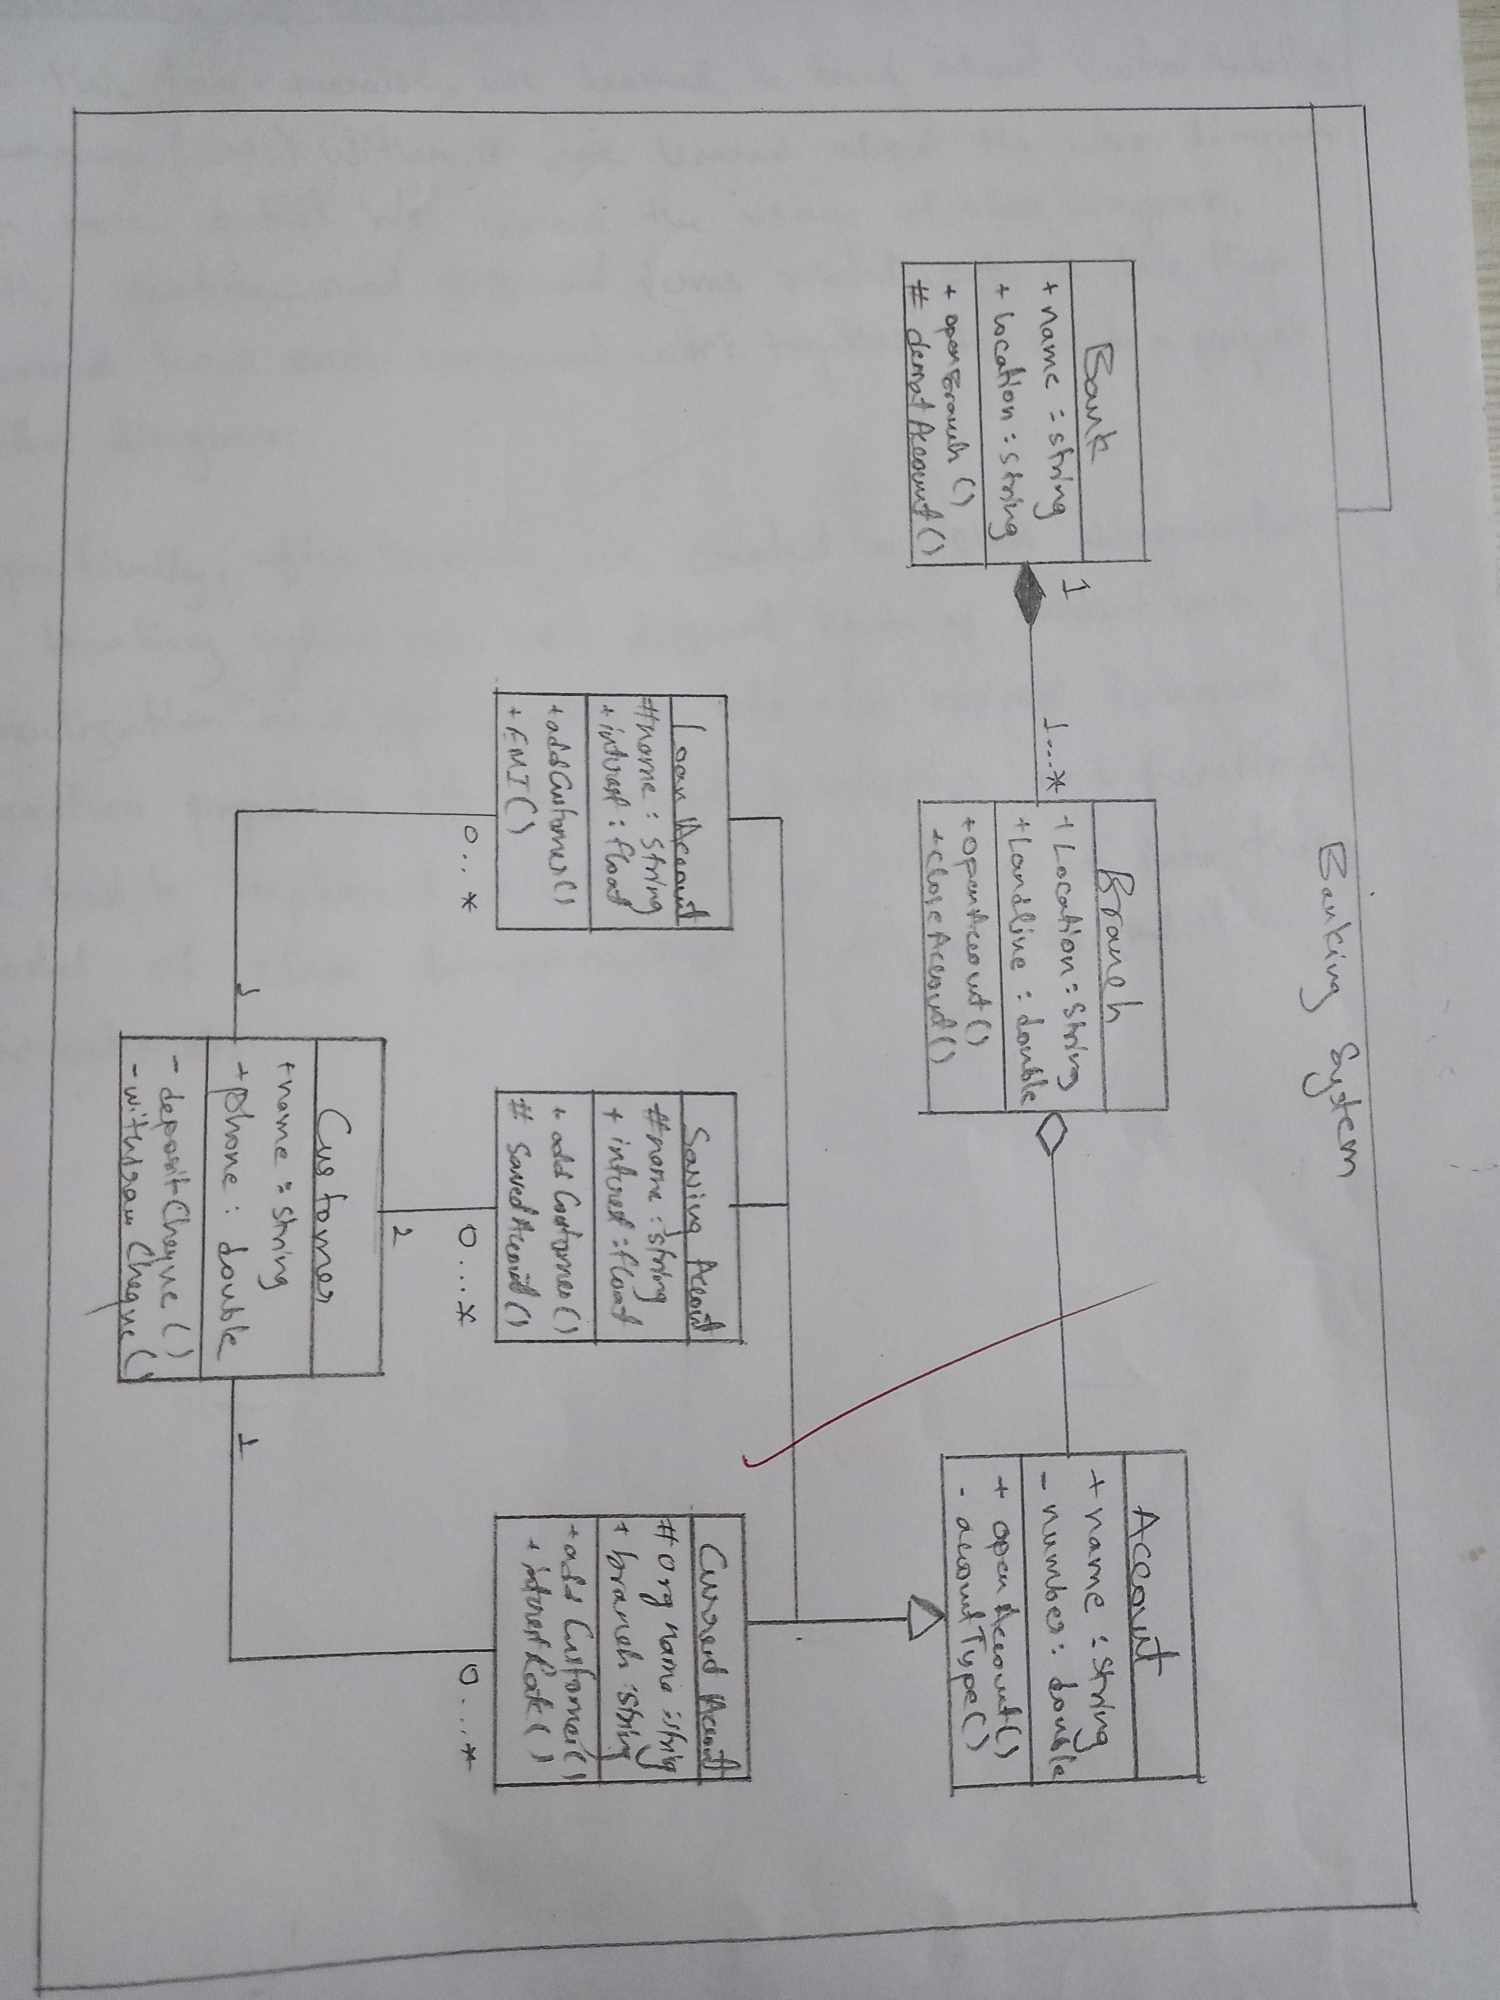 Banking System
Bank
+ name : string
+ location : string
+ openBranch ()
# dematAccount ()
1
1...*
Branch
+ Location : String
+ Landline : double
+ openAccount ()
+ closeAccount ()
Account
+ name : string
- number : double
+ openAccount ()
- accountType ()
Loan Account
# name : string
+ interest : float
+ addCustomer ()
+ EMI ()
0..*
Saving Account
# name : string
+ interest : float
+ add Customer ()
# SavedAccount ()
0...*
2
Current Account
# Org name : string
+ branch : string
+ add Customer ()
+ interestRate ()
0...*
1
1
Customer
+ name : string
+ phone : double
- depositCheque ()
- withdraw Cheque ()